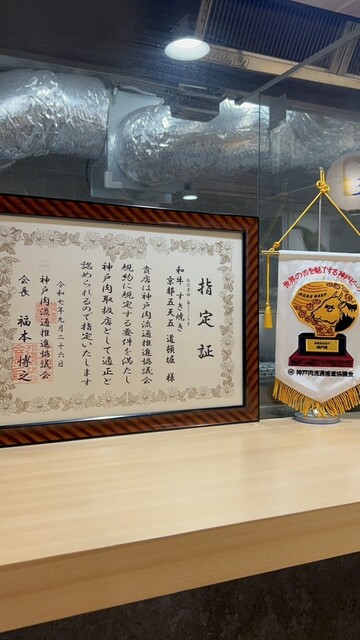 指定証
和牛 すき焼き
京都五天五 道頓堀 様
貴店は神戸肉流通推進協議会
規約に規定する要件を満たし
神戸肉取扱店として適正と
認められるので指定いたします
令和七年九月二十六日
神戸肉流通推進協議会
会長 福本博之
世界の舌を魅了する神戸ビーフ
KOBE BEEF
神戸肉流通推進協議会